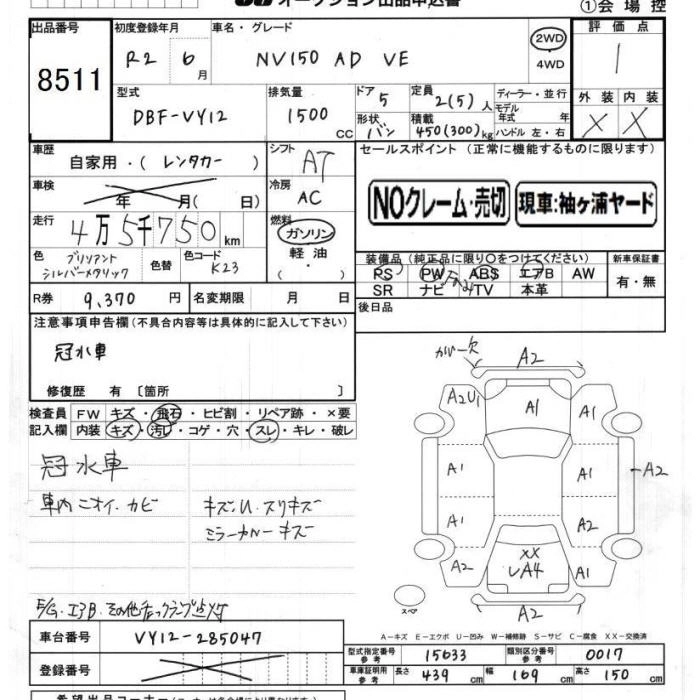 オークション出品申込書
①会場控
出品番号
8511
初度登録年月
R2 6月
車名・グレード
NV150 AD VE
2WD
・
4WD
評価点
1
外装 内装
X X
型式
DBF-VY12
排気量
1500 CC
ドア 5
形状 バン
定員 2(5)人
積載 450(300)kg
ディーラー・並行
モデル年式 年
ハンドル 左・右
車歴
自家用・(レンタカー)
シフト AT
セールスポイント (正常に機能するものに限ります)
車検
年 月( 日)
冷房 AC
NOクレーム・売切
現車:袖ヶ浦ヤード
走行
4万5千750km
燃料
ガソリン
軽油
( ・ )
色 ブリリアント
シルバーメタリック
色替
色コード K23
装備品 (純正品に限り○をつけてください)
PS PW ABS エアB AW
SR ナビ TV 本革
新車保証書
有・無
R券 9,370円
名変期限 月 日
後日品
注意事項申告欄(不具合内容等は具体的に記入して下さい)
冠水車
修復歴 有〔箇所 〕
検査員記入欄
FW キズ・飛石・ヒビ割・リペア跡・×要
内装 キズ・汚レ・コゲ・穴・スレ・キレ・破レ
冠水車
車内ニオイ・カビ
キズ・U・スリキズ
ミラーカバーキズ
カバー欠
A2
A2U1 A1 A1
A1 A1 A2
A1 A2
A2 XX A2
UA4
A2
スペア
A-キズ E-エクボ U-凹み W-補修跡 S-サビ C-腐食 XX-交換済
車台番号 VY12-285047
登録番号
型式指定番号 参考 15633
類別区分番号 参考 0017
車庫証明用 参考 長さ 439cm 幅 169cm 高さ 150cm
希望出品コーナー